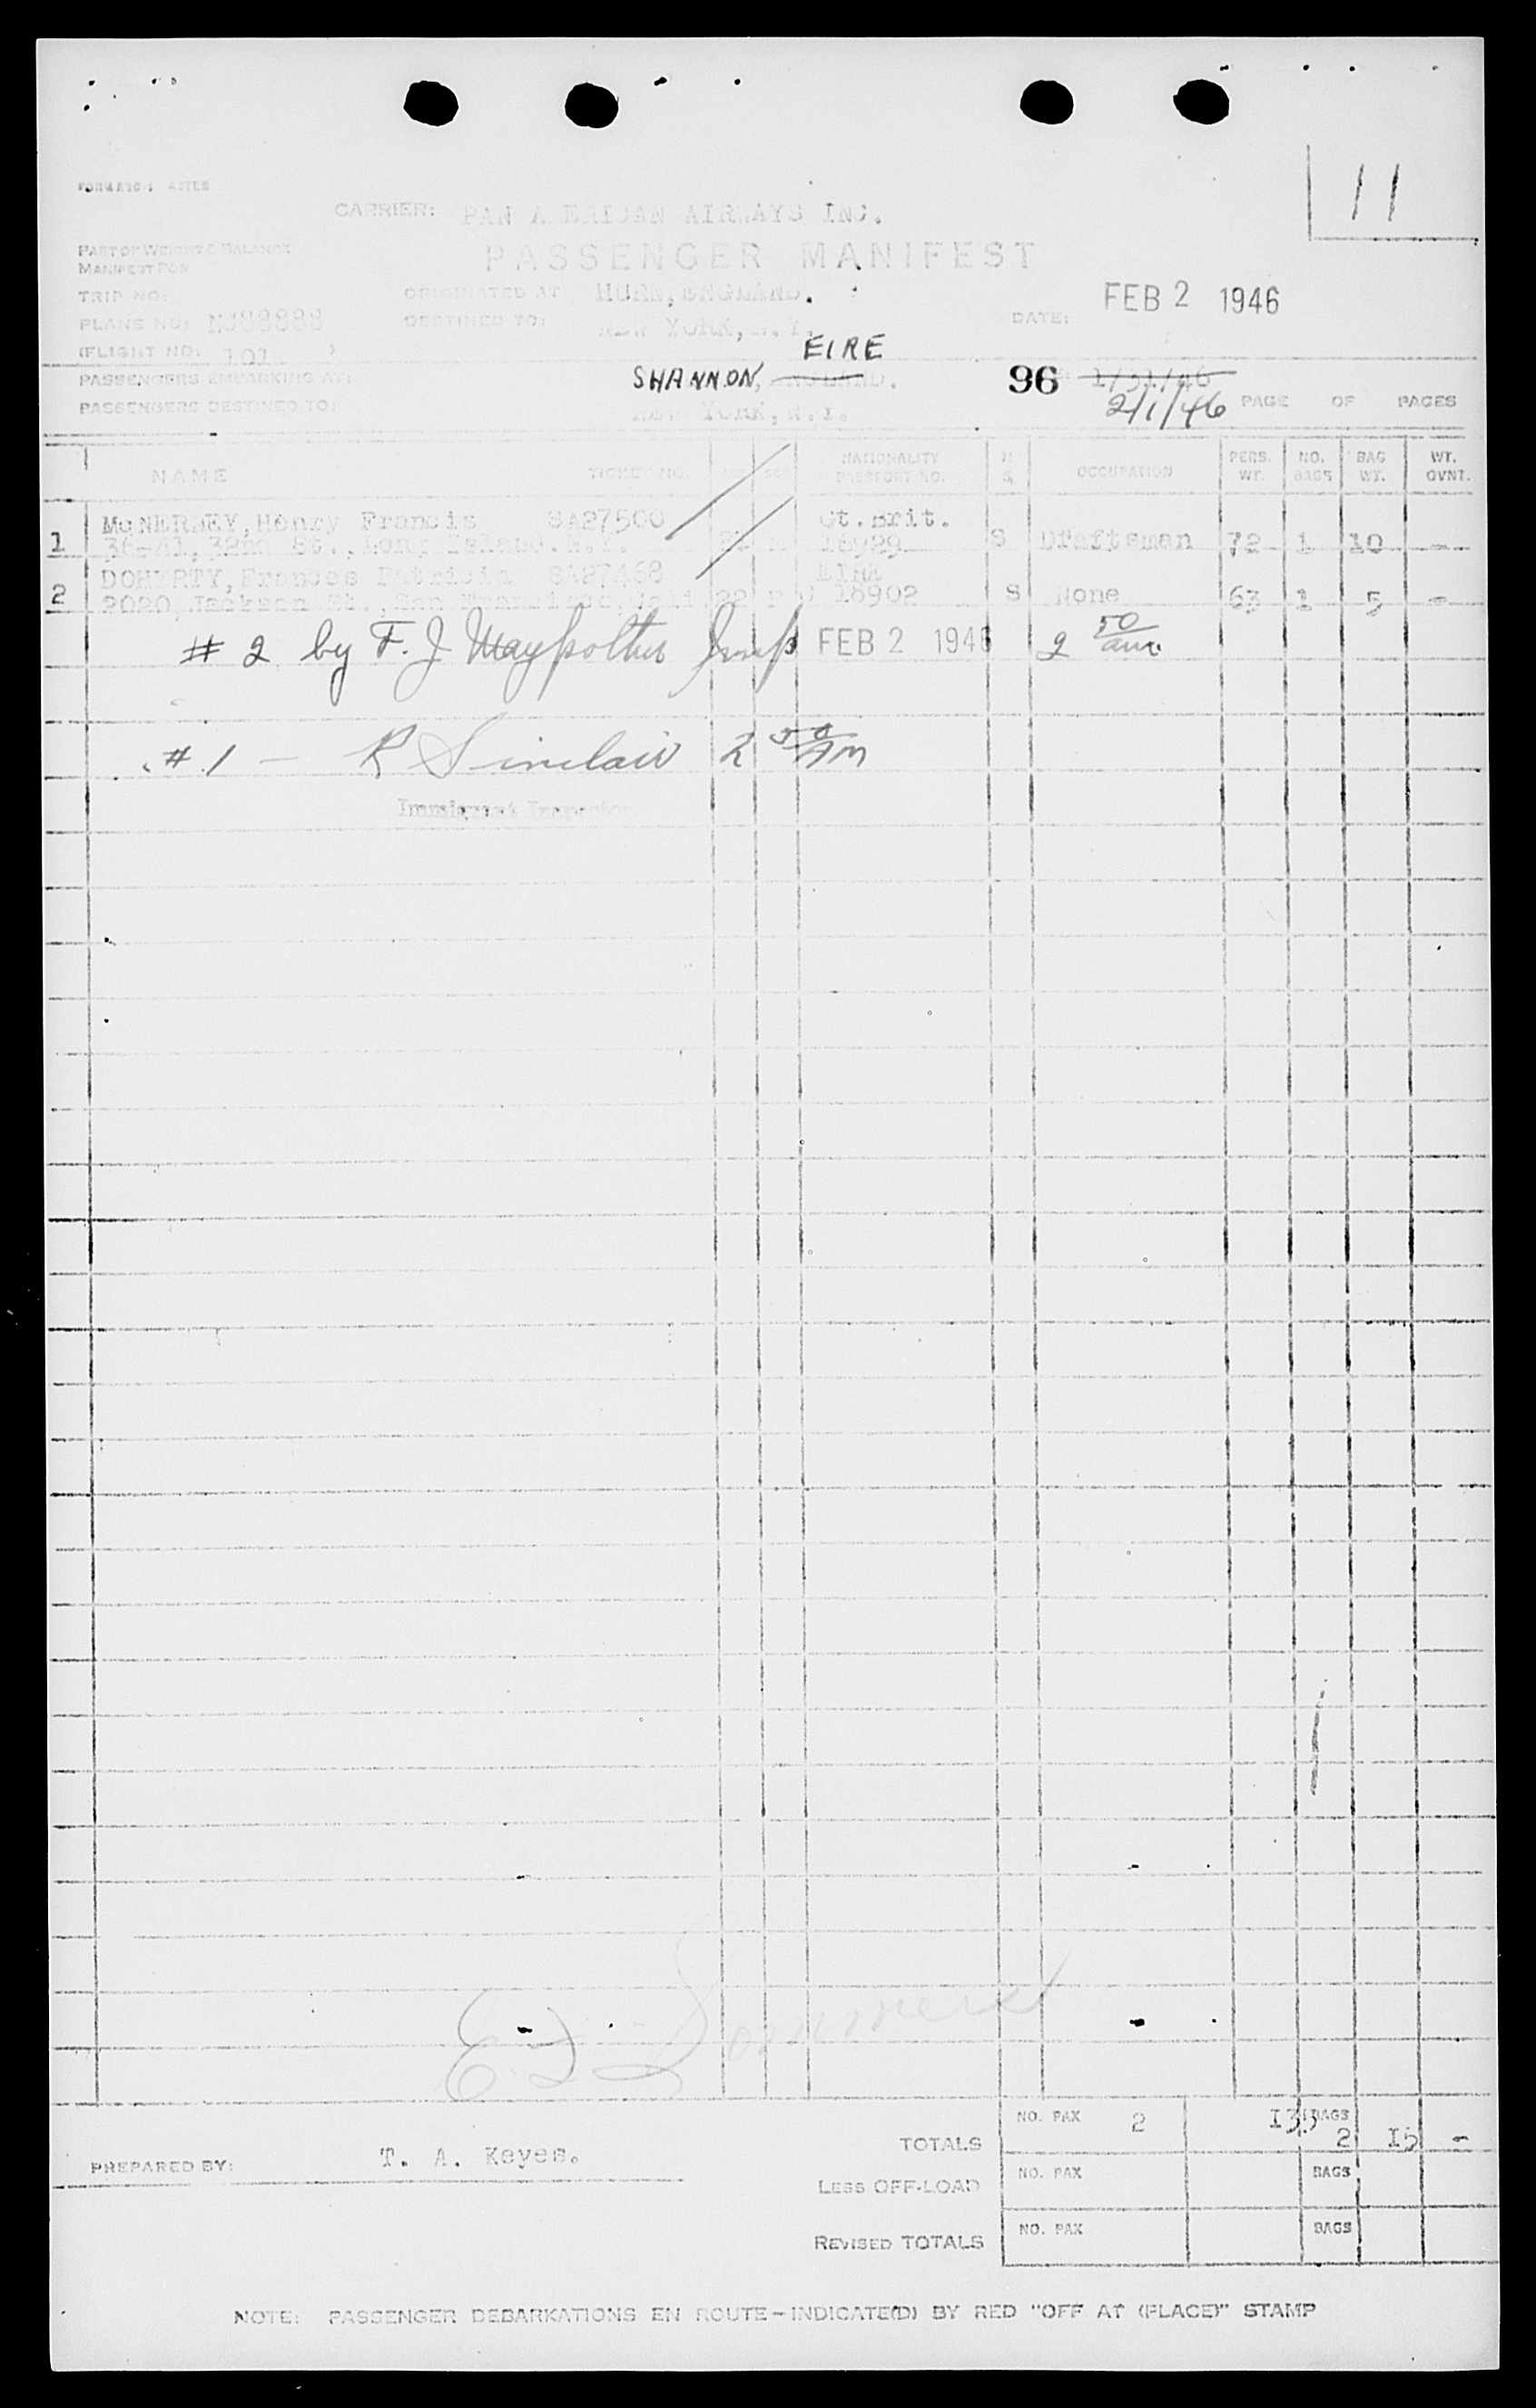 11
CARRIER: PAN A ERICAN AIRWAYS INC.
PART OF WEIGHT & BALANCE
MANIFEST FOR
PASSENGER MANIFEST
TRIP NO:
ORIGINATED AT HURN, ENGLAND.
FEB 2 1946
PLANE NO: NC88888
DESTINED TO: NEW YORK, N.Y.
DATE:
(FLIGHT NO: 101 )
EIRE
PASSENGERS EMBARKING AT:
SHANNON, ENGLAND.
96 1/31/46
PASSENGERS DESTINED TO:
NEW YORK, N.Y.
2/1/46 PAGE OF PAGES
NAME TICKET NO. NATIONALITY PASSPORT NO. OCCUPATION PERS. WT. NO. BAGS BAG WT. WT. OVNT.
McNERNEY, Henry Francis SA27500 Gt. Brit.
1 36-41, 32nd St., Long Island. N.Y. 16929 S Draftsman 72 1 10 -
DOHERTY, Frances Patricia SA27468 EIRE
2 2020, Jackson St., San Francisco, Cali 22 F 16902 S None 63 1 5 -
# 2 by F. J. Maypother Insp FEB 2 1946 2 50 am
# 1 - R Sinclair 2 50 AM
Immigrant Inspector
NO. PAX 2 135 BAGS 2 15 -
TOTALS
PREPARED BY: T. A. Keyes.
LESS OFF-LOAD NO. PAX BAGS
REVISED TOTALS NO. PAX BAGS
NOTE: PASSENGER DEBARKATIONS EN ROUTE - INDICATE(D) BY RED "OFF AT (PLACE)" STAMP